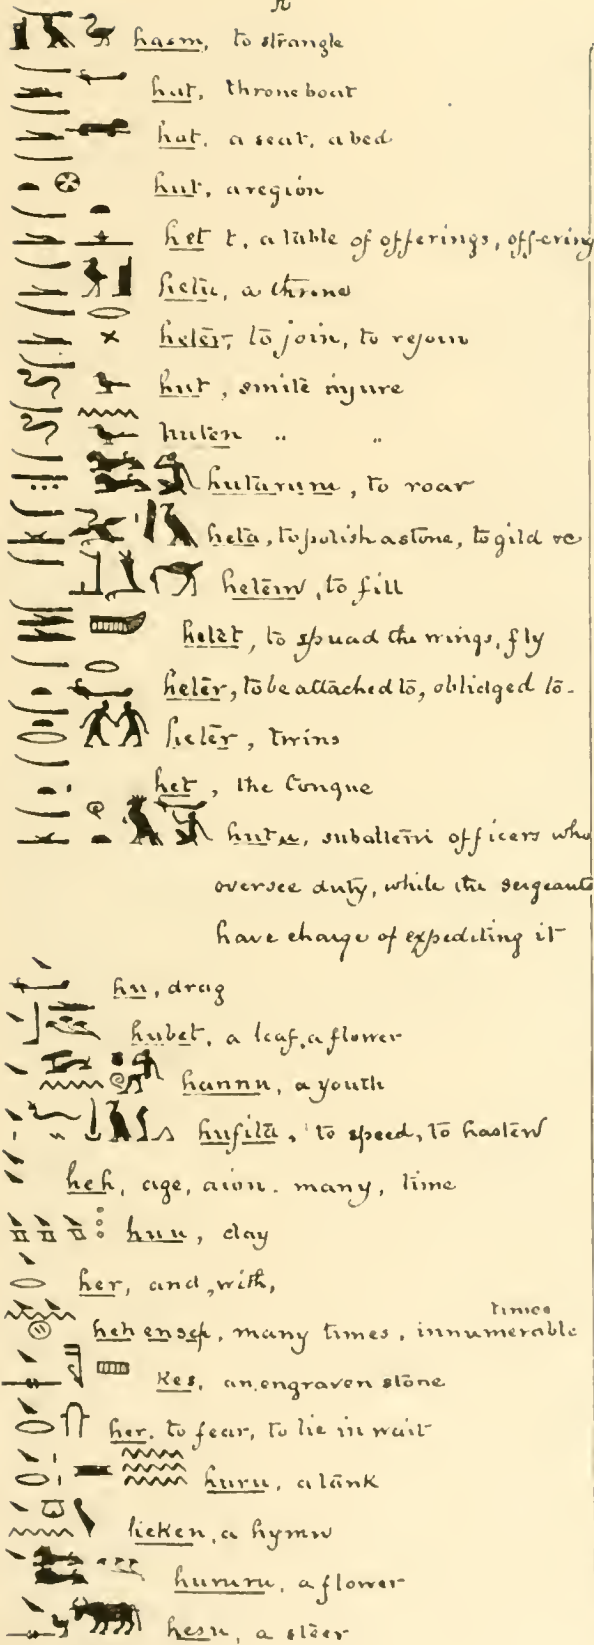 hasm, to strangle
hat, throne boat
hat, a seat, a bed
hut, a region
het t, a table of offerings, offering
hetu, a throne
heter, to join, to rejoin
hut, smite injure
huten " "
hutarum, to roar
heta, to polish a stone, to gild &c
hetem, to fill
hetet, to spread the wings, fly
heter, to be attached to, oblidged to.
heter, twins
het, the tongue
hutu, subaltern officers who
oversee duty, while the sergeants
have charge of expediting it
hu, drag
hubet, a leaf, a flower
hannu, a youth
hufita, to speed, to hasten
heh, age, aion. many, time
huu, clay
her, and, with,
heh en sep, many times, innumerable times
Kes, an engraven stone
her, to fear, to lie in wait
huru, a tank
heken, a hymn
hururu, a flower
hesu, a steer